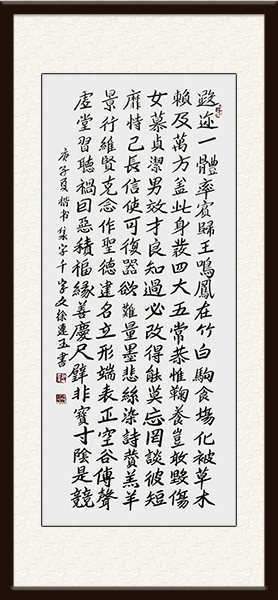 遐迩一體率賓歸王鳴鳳在竹白駒食場化被草木
賴及萬方盖此身髮四大五常恭惟鞠養豈敢毀傷
女慕貞潔男效才良知過必改得能莫忘罔談彼短
靡恃己長信使可復器欲難量墨悲絲染詩讚羔羊
景行維賢克念作聖德建名立形端表正空谷傳聲
虛堂習聽禍因惡積福緣善慶尺璧非寶寸陰是競
庚子夏楷书集字千字文徐連玉書